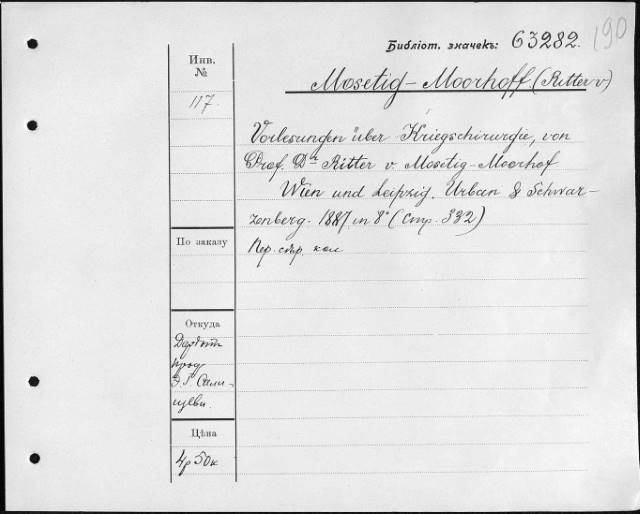 Библіот. значекъ: 63282.
190
Инв.
№
117.
Mosetig-Moorhoff. (Ritter v)
Vorlesungen über Kriegschirurgie, von
Prof. Dr Ritter v. Mosetig-Moorhof
Wien und Leipzig. Urban & Schwar-
zenberg. 1887 in 8° (Стр. 332)
По заказу
Пер.
Откуда
Э. Г. Сали-
щева.
Цѣна
4р 50к